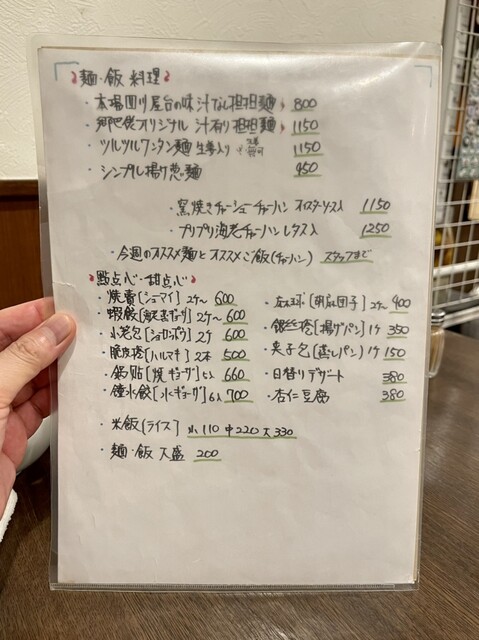 麺・飯 料理
・本場四川屋台の味 汁なし担担麺 800
オリジナル 汁有り 担担麺 1150
・ツルツルワンタン麺 生姜入り 1150
・シンプル揚げ葱麺 950
・窯焼きチャーシューチャーハン オイスターソース入 1150
・プリプリ海老チャーハン レタス入 1250
・今週のオススメ麺とオススメご飯(チャーハン) スタッフまで
點点心・甜点心
・焼賣[シューマイ] 2ケ〜 600
・蝦餃[海老蒸ギョウザ] 2ケ〜 600
・小老包[ショーロンポウ] 2ケ 600
・脆皮捲[ハルマキ] 2本 500
・鍋貼[焼ギョーザ] 5ケ 660
・鐘水餃[水ギョーザ] 6ケ 700
・麻球[胡麻団子] 2ケ〜 400
・銀絲捲[揚げパン] 1ケ 350
[蒸しパン] 1ケ 150
・日替りデザート 380
・杏仁豆腐 380
・米飯[ライス] 小110 中220 大330
・麺・飯 大盛 200